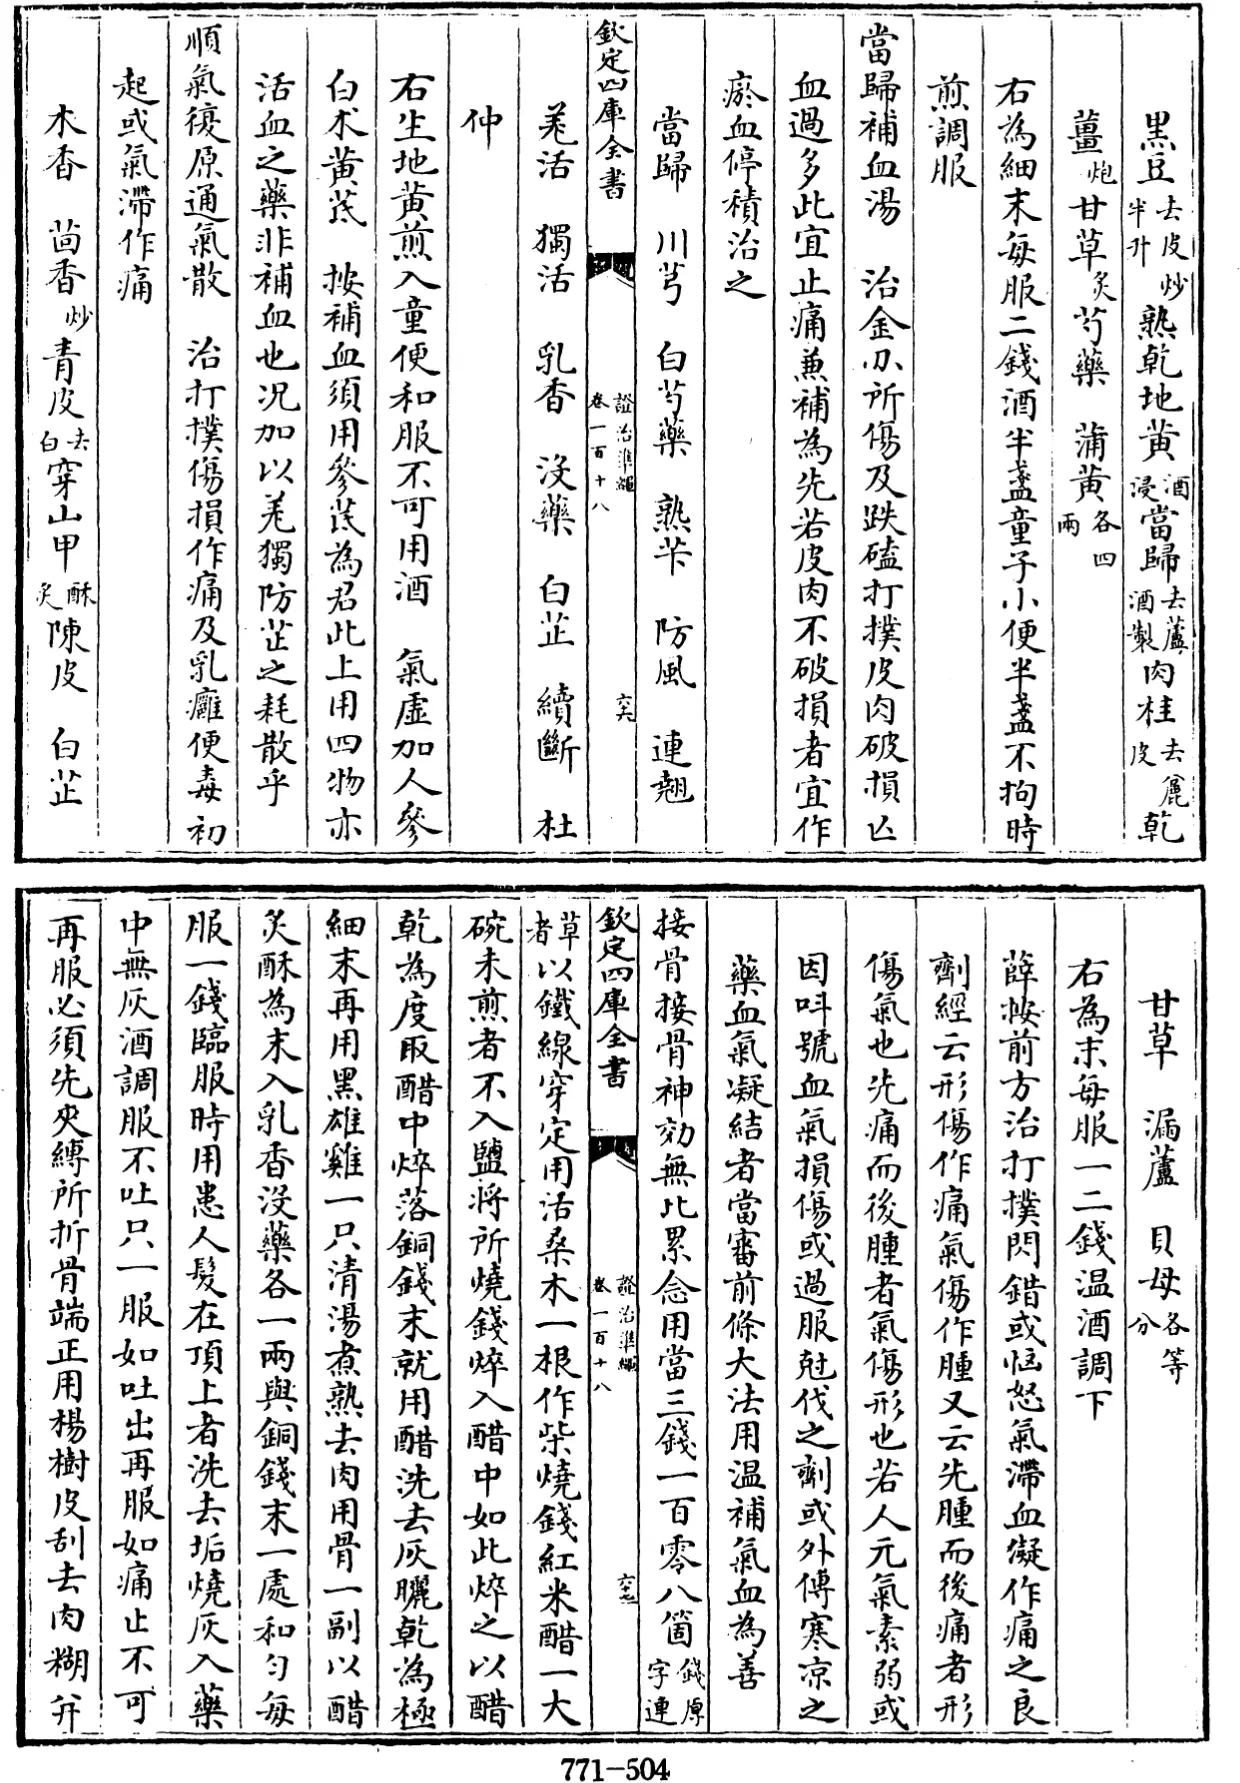 黒豆去皮炒半升 熟乾地黄酒浸當歸去蘆酒製肉桂去麄皮乾
薑炮甘草炙芍藥 蒲黄各四兩
右為細末每服二錢酒半盞童子小便半盞不拘時
煎調服
當歸補血湯 治金刃所傷及跌磕打撲皮肉破損亡
血過多此宜止痛兼補為先若皮肉不破損者宜作
瘀血停積治之
當歸 川芎 白芍藥 熟苄 防風 連翹
欽定四庫全書 證治準繩 卷一百十八 六十六
羗活 獨活 乳香 沒藥 白芷 續斷 杜
仲
右生地黄煎入童便和服不可用酒 氣虛加人參
白朮黄芪 按補血須用參芪為君此上用四物亦
活血之藥非補血也況加以羗獨防芷之耗散乎
順氣復原通氣散 治打撲傷損作痛及乳癰便毒初
起或氣滯作痛
木香 茴香炒青皮去白穿山甲酥炙陳皮 白芷
甘草 漏蘆 貝母各等分
右為末每服一二錢温酒調下
薛按前方治打撲閃錯或惱怒氣滯血凝作痛之良
劑經云形傷作痛氣傷作腫又云先腫而後痛者形
傷氣也先痛而後腫者氣傷形也若人元氣素弱或
因叫號血氣損傷或過服尅伐之劑或外傅寒凉之
藥血氣凝結者當審前條大法用温補氣血為善
接骨接骨神効無比累念用當三錢一百零八箇錢厚字連
欽定四庫全書 證治準繩 卷一百十八 六十七
草者以鐵線穿定用活桑木一根作柴燒錢紅米醋一大
碗未煎者不入鹽將所燒錢焠入醋中如此焠之以醋
乾為度取醋中焠落銅錢末就用醋洗去灰曬乾為極
細末再用黑雄雞一只清湯煮熟去肉用骨一副以醋
炙酥為末入乳香沒藥各一兩與銅錢末一處和匀每
服一錢臨服時用患人髮在頂上者洗去垢燒灰入藥
中無灰酒調服不吐只一服如吐出再服如痛止不可
再服必須先夾縛所折骨端正用楊樹皮刮去肉糊并
771-504